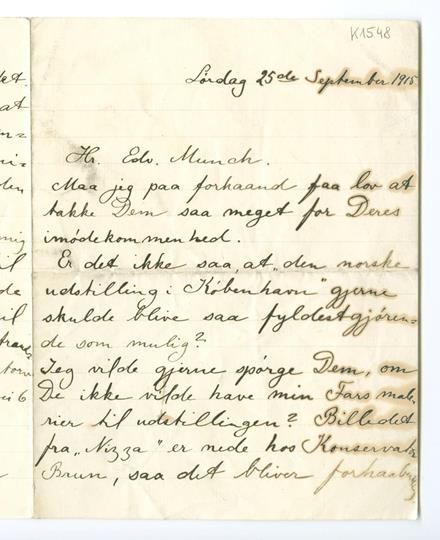 K1548
Lørdag 25de September 1915
Hr. Edv. Munch.
Maa jeg paa forhaand faa lov at
takke Dem saa meget for Deres
imødekommenhed.
Er det ikke saa, at „den norske
udstilling i København" gjerne
skulde blive saa fyldestgjøren=
de som mulig?
Jeg vilde gjerne spørge Dem, om
De ikke vilde have min Fars male_
rier til udstillingen? Billedet
fra „Nizza" er nede hos Konservator
Brun, saa det bliver